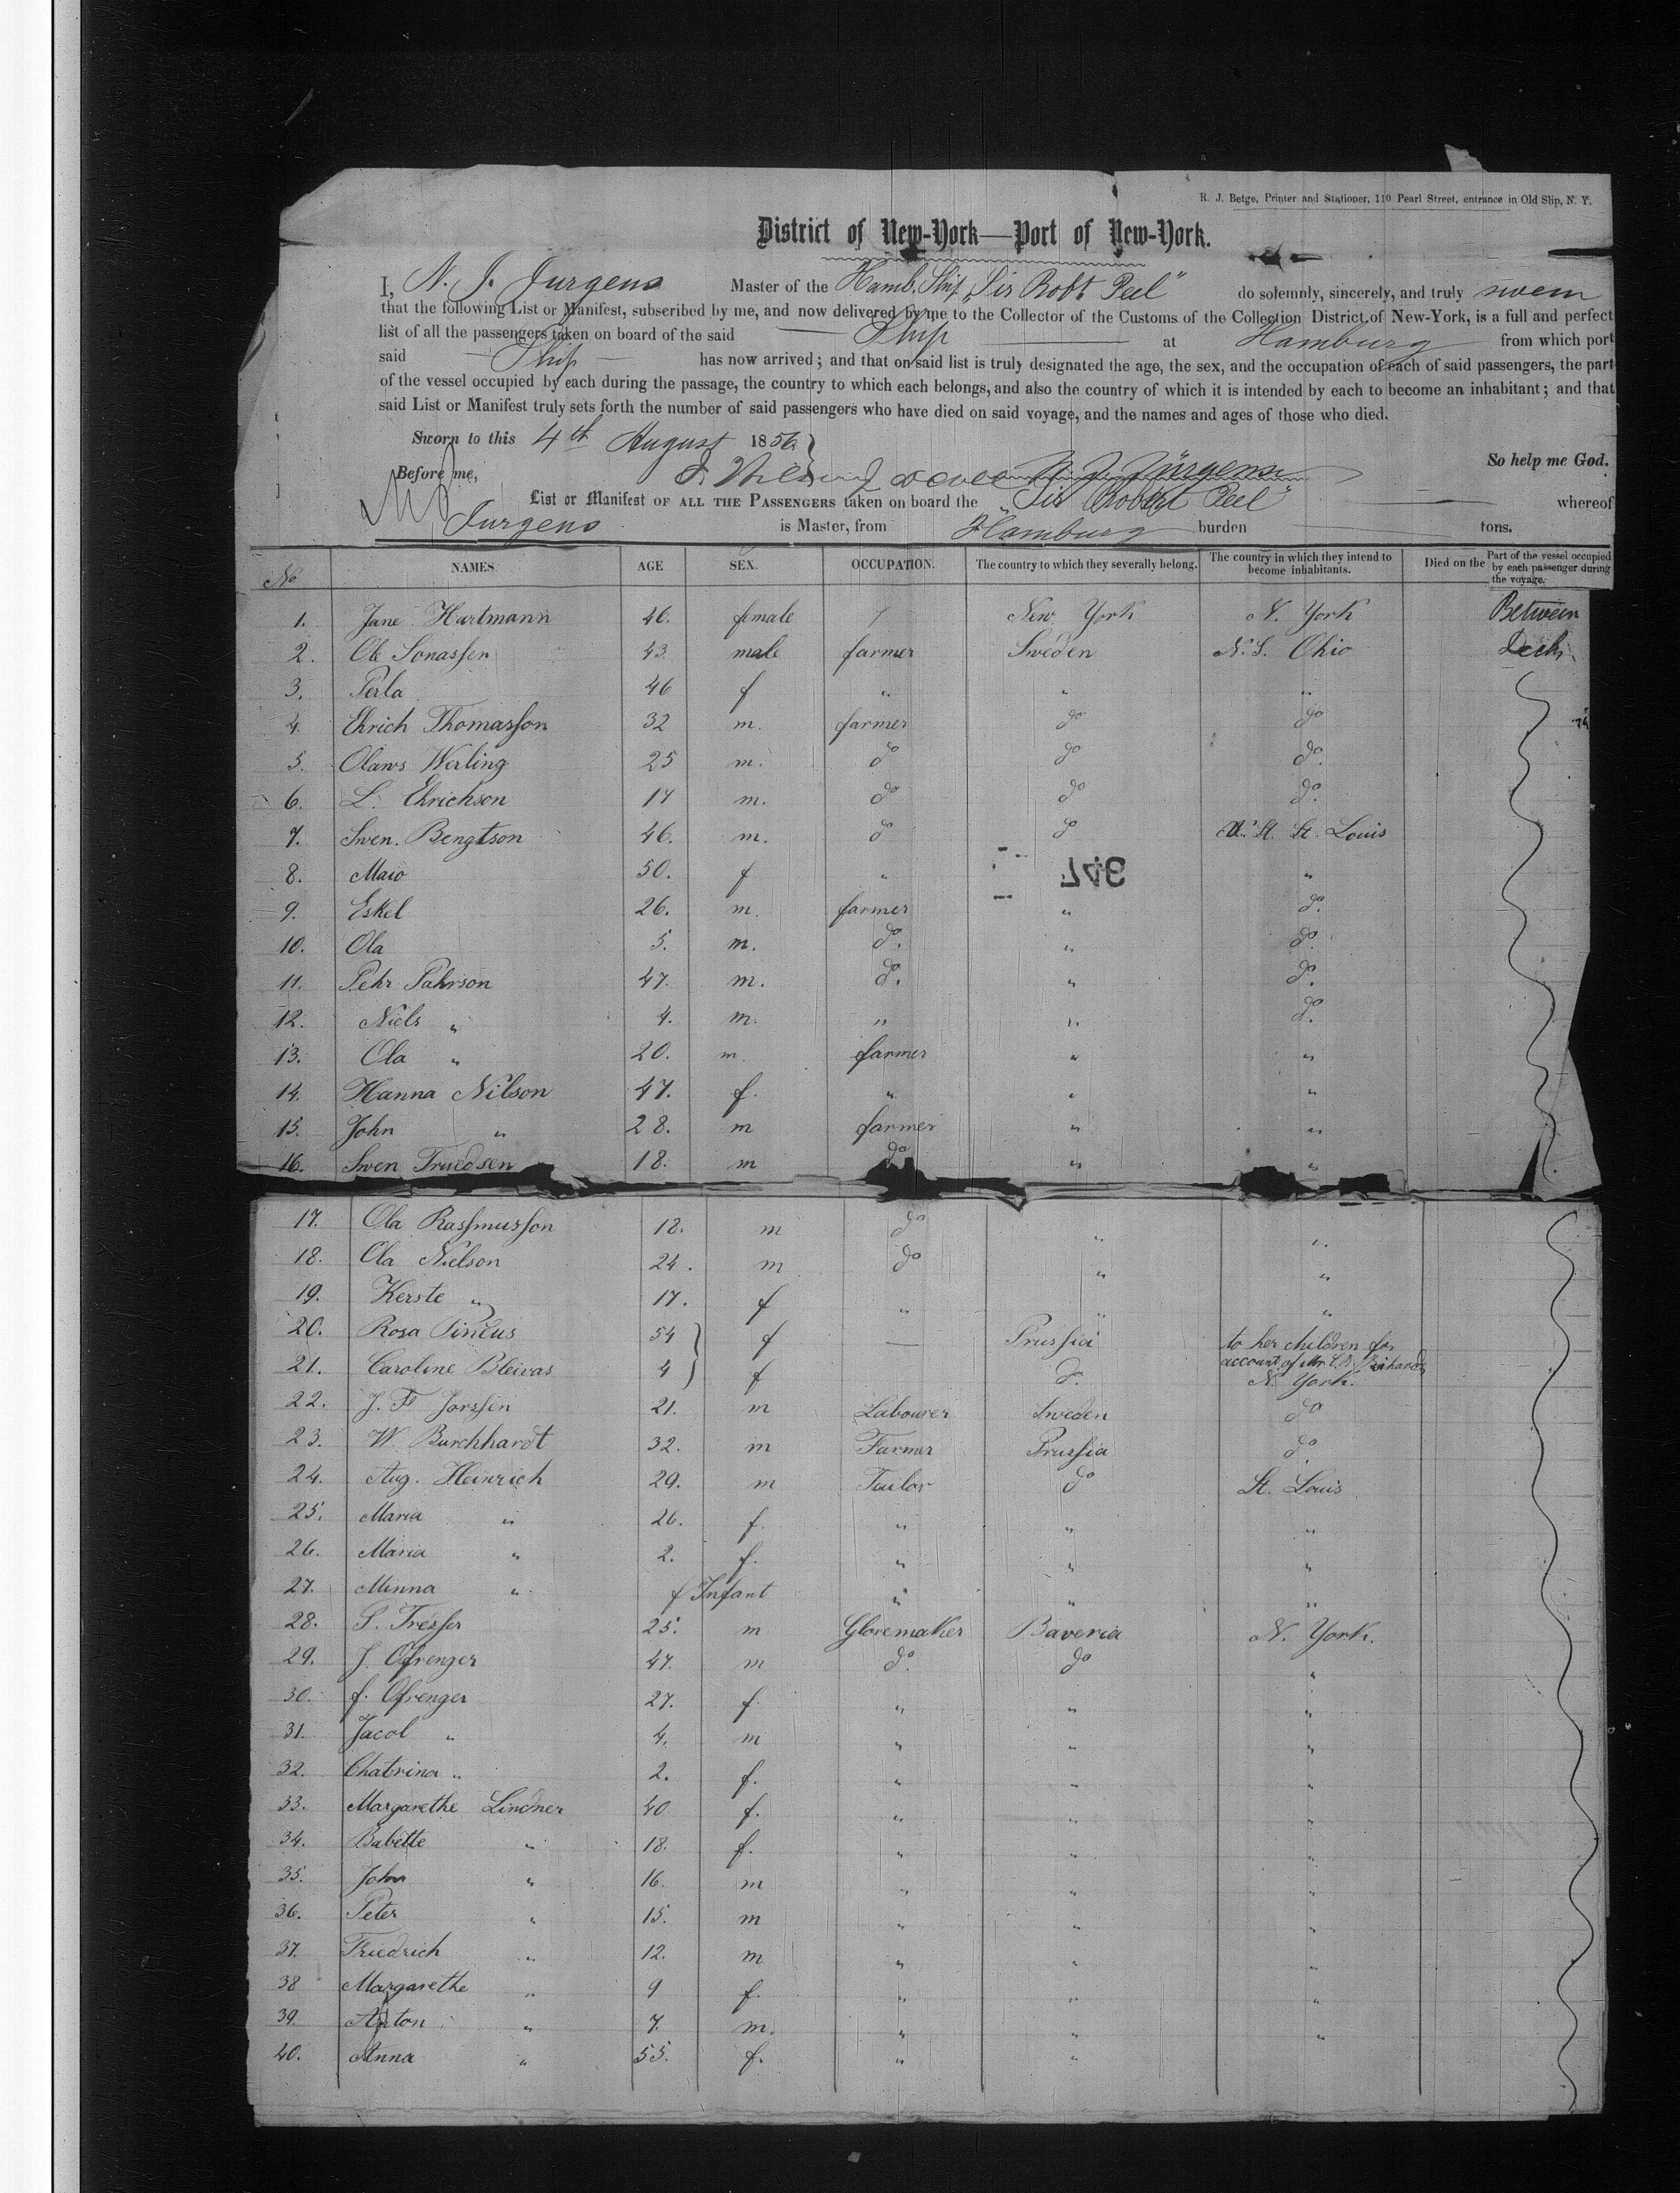 R. J. Betge, Printer and Stationer, 110 Pearl Street, entrance in Old Slip, N. Y.
District of New-York—Port of New-York.
I, N. J. Jurgens Master of the Hamb. Ship "Sir Robt Peel" do solemnly, sincerely, and truly swear
that the following List or Manifest, subscribed by me, and now delivered by me to the Collector of the Customs of the Collection District of New-York, is a full and perfect
list of all the passengers taken on board of the said Ship at Hamburg from which port
said Ship has now arrived; and that on said list is truly designated the age, the sex, and the occupation of each of said passengers, the part
of the vessel occupied by each during the passage, the country to which each belongs, and also the country of which it is intended by each to become an inhabitant; and that
said List or Manifest truly sets forth the number of said passengers who have died on said voyage, and the names and ages of those who died.
Sworn to this 4th August 1856
Before me, N. J. Jürgens So help me God.
List or Manifest OF ALL THE PASSENGERS taken on board the "Sir Robert Peel" whereof
Jurgens is Master, from Hamburg burden tons.
No NAMES AGE SEX. OCCUPATION. The country to which they severally belong. The country in which they intend to become inhabitants. Died on the Part of the vessel occupied by each passenger during the voyage.
1. Jane Hartmann 46. female / New York N. York Between
2. Ole Jonassen 43. male farmer Sweden N.S. Ohio Deck
3. Perla 46 f " " "
4. Ehrich Thomasson 32 m. farmer do do
5. Olaws Werling 25 m. do do do.
6. L. Ehrichson 17 m. do do do.
7. Swen. Bengtson 46. m. do do St. Louis
8. Maio 50. f " 347 "
9. Eskel 26. m. farmer " do.
10. Ola 5. m. do. " do.
11. Pehr Pahrson 47. m. do. " do.
12. Niels " 4. m. " " do.
13. Ola " 20. m. farmer " "
14. Hanna Nilson 47. f. " " "
15. John " 28. m farmer " "
16. Swen Truedsen 18. m do " "
17. Ola Rassmusson 18. m do " "
18. Ola Nielson 24. m do " "
19. Kerste " 17. f " " "
20. Rosa Pincus 54 f — Prussia to her children for
account of Mr C.B. Richards
21. Caroline Bleiwas 4 f do. N. York.
22. J. F. Jorssen 21. m Labourer Sweden do
23. W. Burchhardt 32. m Farmer Prussia do.
24. Aug. Heinrich 29. m Tailor do St. Louis
25. Maria " 26. f. " " "
26. Maria " 2. f. " " "
27. Minna " f Infant " " "
28. S. Tresser 25. m Glovemaker Baveria N. York.
29. J. Ofrenger 47. m do. do "
30. f. Ofrenger 27. f " " "
31. Jacol " 4. m " " "
32. Chatrina " 2. f. " " "
33. Margarethe Lindner 40 f. " " "
34. Babette " 18. f. " " "
35. John " 16. m " " "
36. Peter " 15. m " " "
37. Friedrich " 12. m " " "
38 Margarethe " 9 f. " " "
39. Anton " 7. m. " " "
40. Anna " 55. f. " "